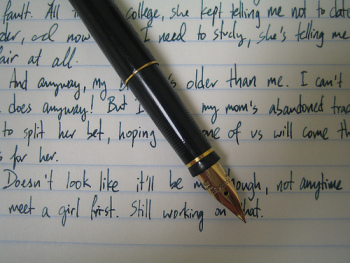 fault. All th college, she kept telling me not to date
der, and now I need to study, she's telling me
fair at all.
And anyway, my 's older than me. I can't
does anyway! But I my mom's abandoned
to split her bet, hoping one of us will come th
s for her.
Doesn't look like it'll be me though, not anytime
meet a girl first. Still working on that.